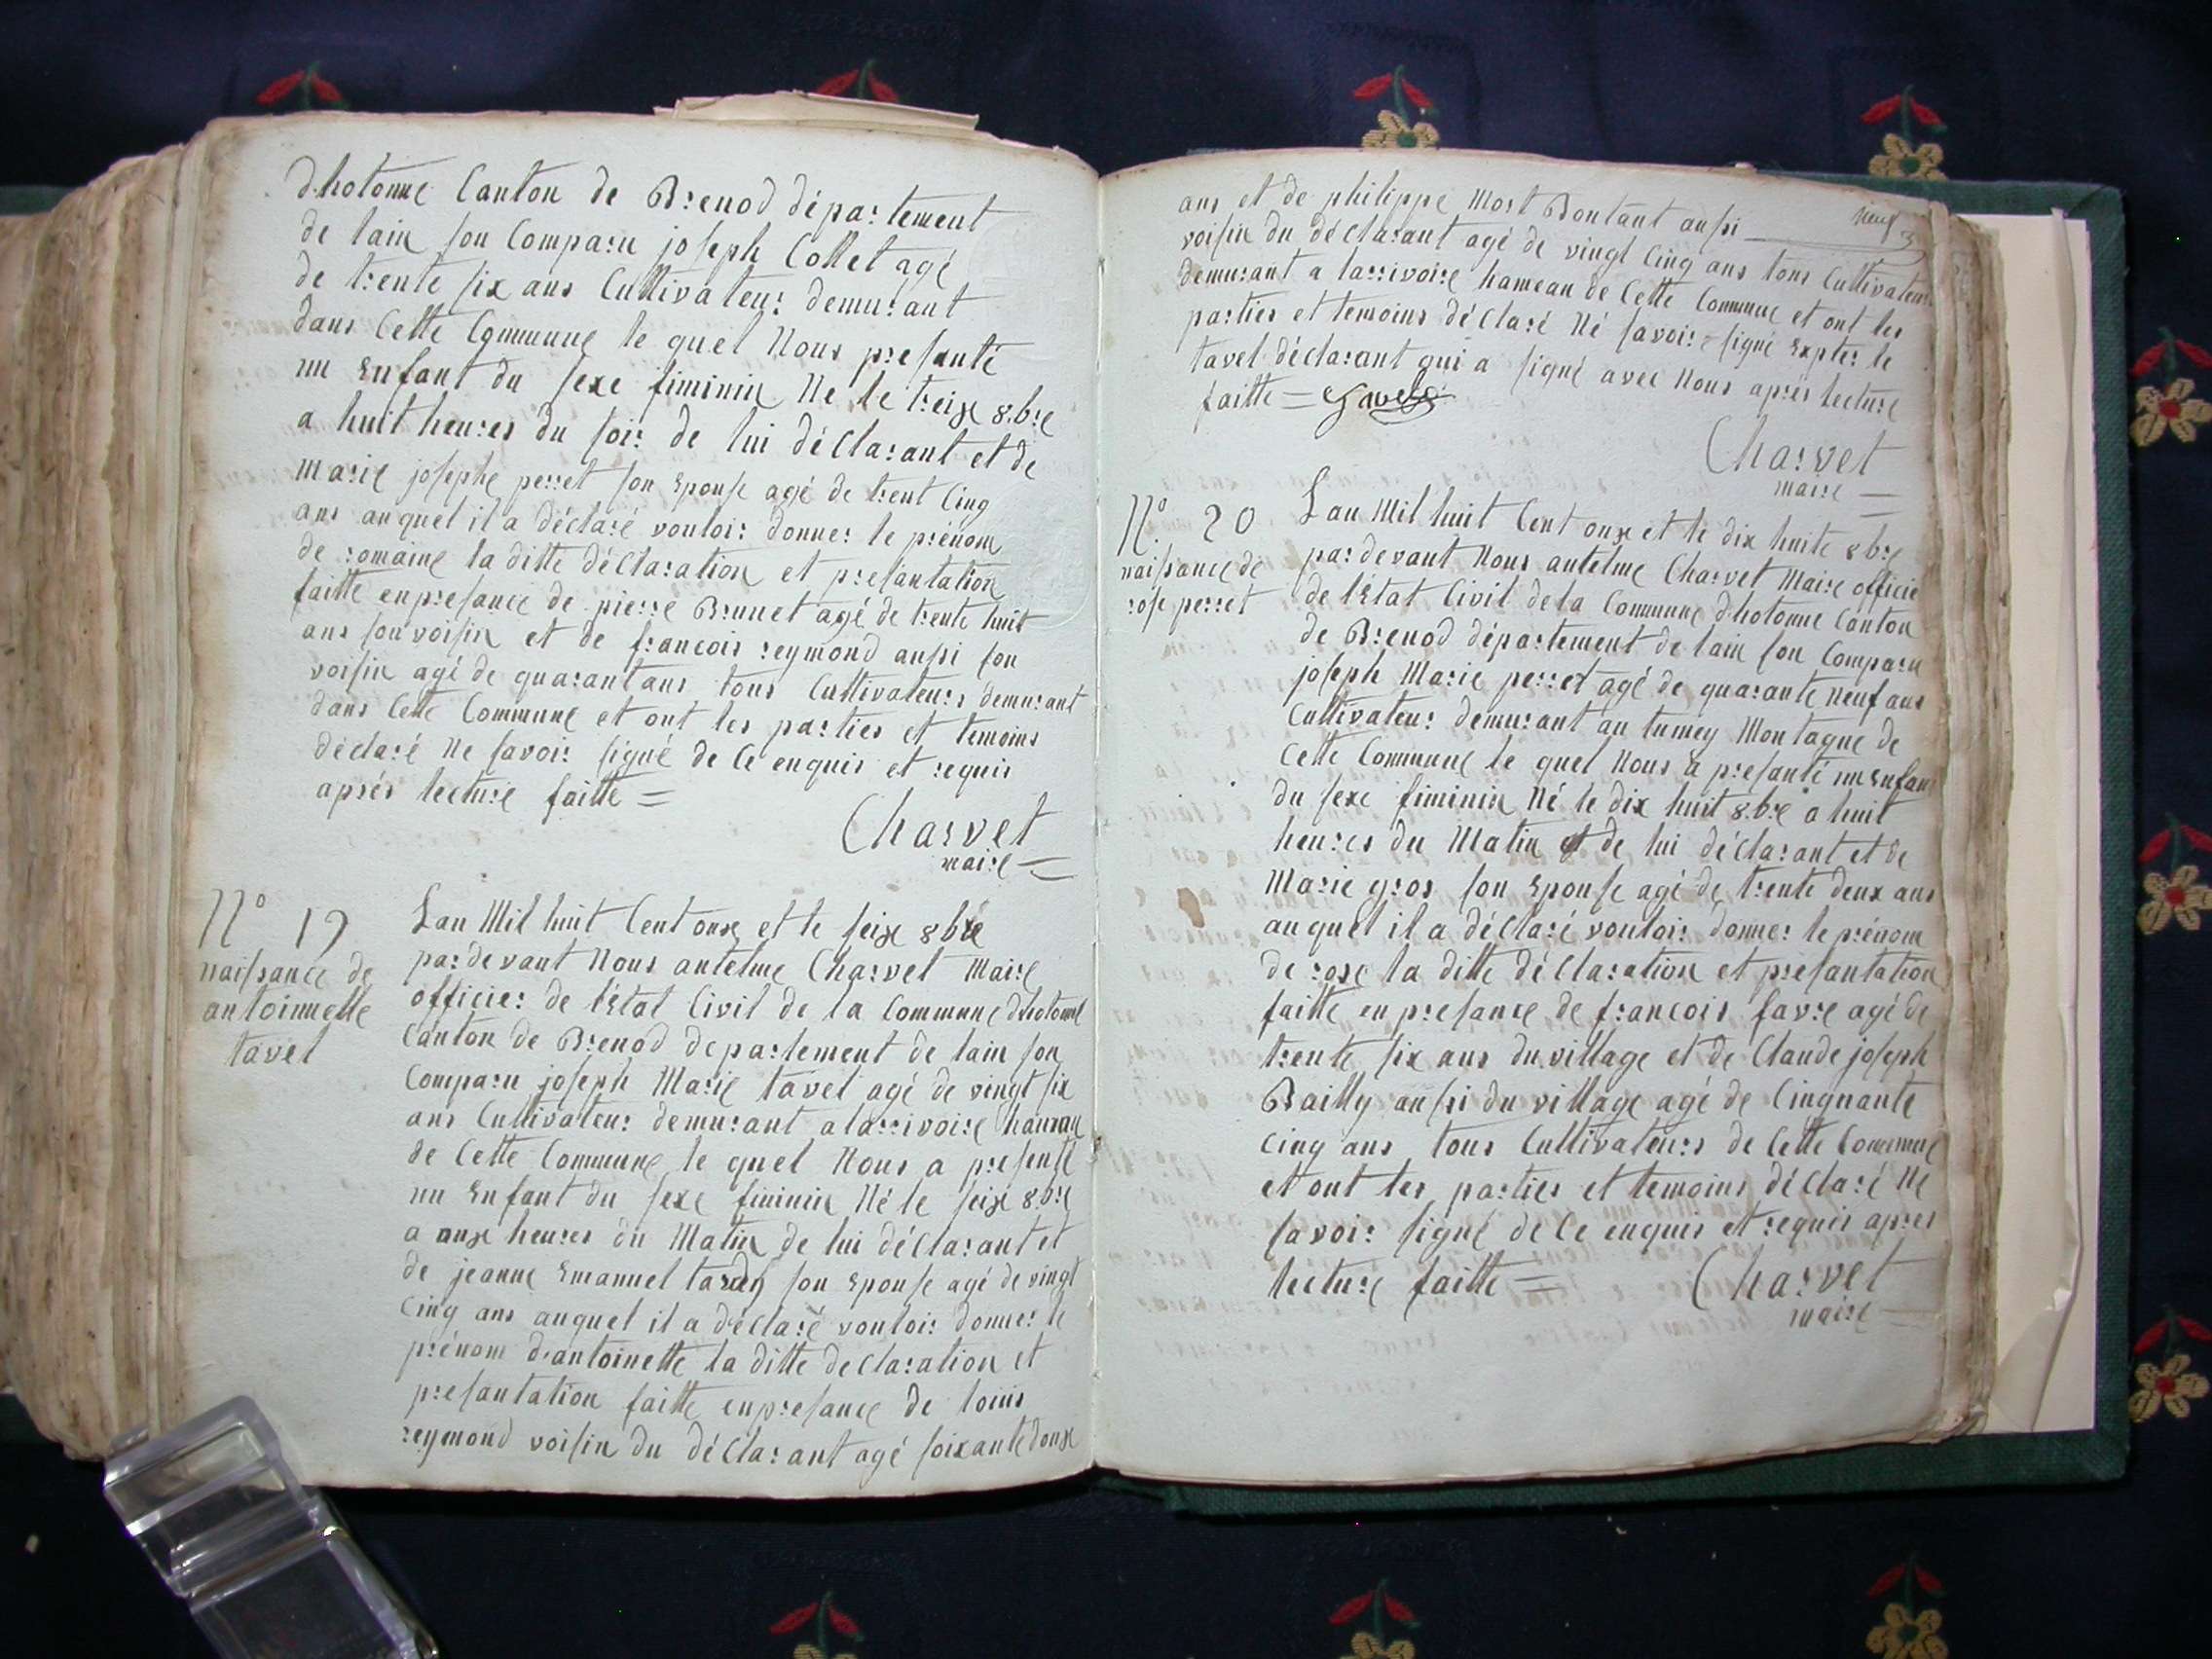 d'hotonne Canton de Brenod département
de lain son Comparu joseph Collet agé
de trente six ans Cultivateur demurant
dans Cette Commune le quel Nous presanté
un Enfant du sexe fiminin Ne le treise 8.bre
a huit heures du soir de lui déclarant et de
Marie josephe perret son Epouse agé de trent Cinq
ans auquel il a déclaré vouloir donner le prénom
de romaine la ditte déclaration et presantation
faitte enpresance de pierre Brunet agé de trente huit
ans son voisin et de francois reymond aussi son
voisin agé de quarant ans tous Cultivateurs demurant
dans Cette Commune et ont les parties et temoins
déclaré Ne savoir signé de Ce enquis et requis
aprés lecture faitte =
Charvet
maire =
N° 19
naissance de
antoinnette
tavel
Lan Mil huit Cent onse et le seise 8bre
pardevant Nous antelme Charvet Maire
officier de l'Etat Civil de la Commune d'hotonne
Canton de Brenod departement de lain son
Comparu joseph Marie tavel agé de vingt six
ans Cultivateur demurant a larrivoire hameau
de Cette Commune le quel Nous a presenté
un Enfant du sexe fiminin Né le seise 8.bre
a onse heures du Matin de lui déclarant et
de jeanne Emanuel tardy son Epouse agé de vingt
Cinq ans auquel il a déclaré vouloir donner le
prénom d'antoinette la ditte declaration et
presantation faitte enpresance de louis
reymond voisin du déclarant agé soixante douse
neuf
ans et de philippe Most Bontant aussi
voisin du déclarant agé de vingt Cinq ans tous Cultivateurs
demurant a larrivoire hameau de Cette Commune et ont les
parties et temoins déclaré Né savoir signé Expter le
tavel déclarant qui a signé avec Nous aprés lecture
faitte = Tavel
Charvet
maire =
N° 20
naissance de
rose perret
Lan Mil huit Cent onse et le dix huite 8bre
pardevant Nous antelme Charvet Maire officie
de l'Etat Civil de la Commune d'hotonne Canton
de Brenod département de lain son Comparu
joseph Marie perret agé de quarante Neuf ans
Cultivateur demurant au tumey Montagne de
Cette Commune le quel Nous a presanté un Enfant
du sexe fiminin Né le dix huit 8.bre a huit
heures du Matin et de lui déclarant et de
Marie gros son Epouse agé de trente deux ans
auquel il a déclaré vouloir donner le prénom
de rose la ditte déclaration et presantation
faitte en presance de francois favre agé de
trente six ans du village et de Claude joseph
Bailly aussi du village agé de Cinquante
cinq ans tous Cultivateurs de Cette Commune
et ont les parties et temoins déclaré Ne
savoir signé de Ce enquis et requis apres
lecture faitte =
Charvet
maire =